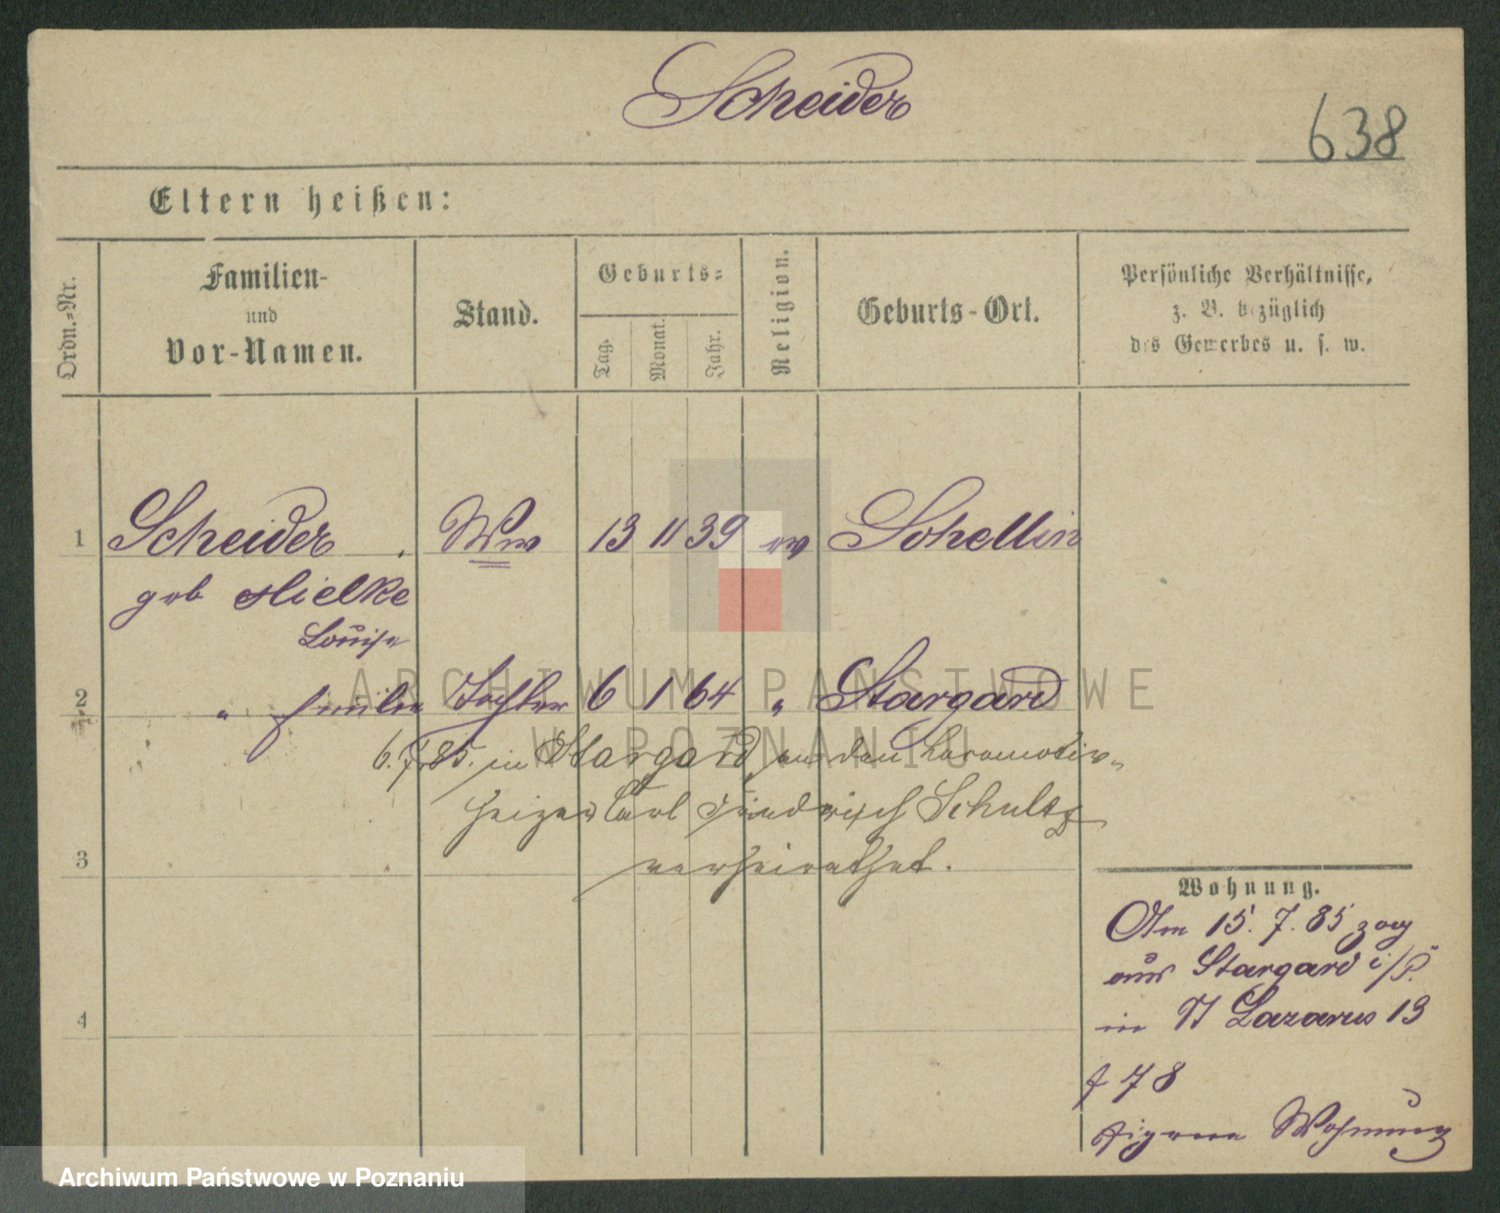 Scheider
638
Eltern heißen:
Ordn.-Nr.
Familien-
und
Vor-Namen.
Stand.
Geburts-
Tag.
Monat.
Jahr.
Religion.
Geburts-Ort.
Persönliche Verhältnisse,
z. B. bezüglich
des Gewerbes u. s. w.
1 Scheider Ww 13 11 39 ev Schellin
geb Mielke
Louise
2 " Emilie Tochter 6 1 64 " Stargard
6.7.85. in Stargard an den Locomotiv-
heizer Carl Friedrich Schultz
verheirathet.
3
4
Wohnung.
Am 15. 7. 85 zog
aus Stargard i/P.
in St Lazarus 13
f 78
eigene Wohnung
ARCHIWUM PAŃSTWOWE
W POZNANIU
Archiwum Państwowe w Poznaniu